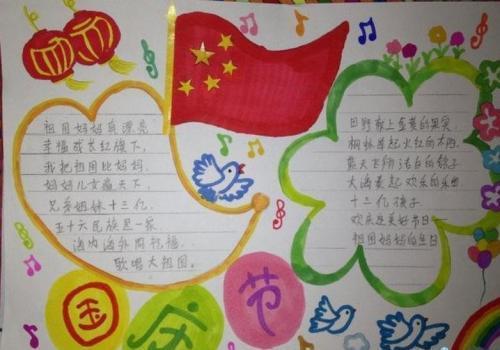 祖国妈妈真漂亮
幸福成长红旗下，
我把祖国比妈妈，
妈妈儿女赢天下，
兄弟姐妹十三亿。
五十六民族是一家
海内海外同祝福，
歌唱大祖国。
田野献上金黄的果实，
枫林举起火红的
蓝天飞翔洁白的鸽子
大海奏起欢乐的乐曲
十三亿孩子
欢庆美好节日——
祖国妈妈的生日
国庆节